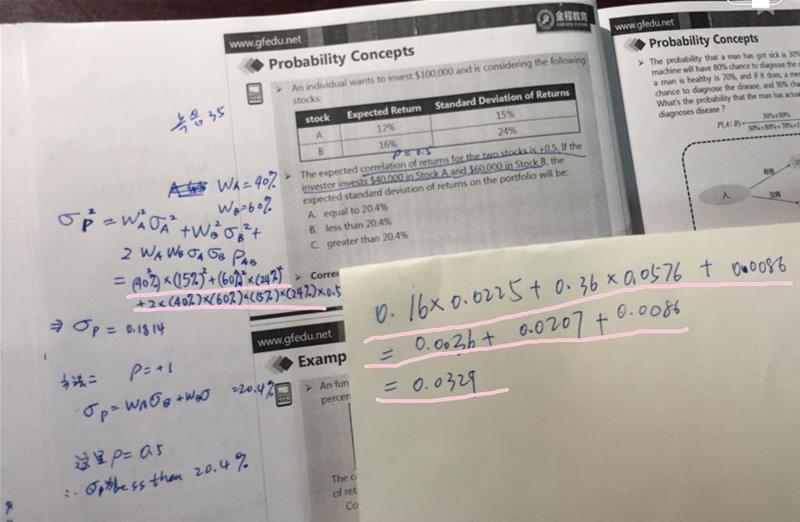 www.gfedu.net
金程教育
Probability Concepts
An individual wants to invest $100,000 and is considering the following
stocks:
stock Expected Return Standard Deviation of Returns
A 12% 15%
B 16% 24%
ρ=0.5
The expected correlation of returns for the two stocks is +0.5. If the
investor invests $40,000 in Stock A and $60,000 in Stock B, the
expected standard deviation of returns on the portfolio will be:
A. equal to 20.4%
B. less than 20.4%
C. greater than 20.4%
Corre
35
W_A=40%
W_B=60%
σ_P²=W_A²σ_A²
+W_B²σ_B²+
2 W_A W_B σ_A σ_B ρ_AB
=(40%)²×(15%)²+(60%)²×(24%)²
+2×(40%)×(60%)×(15%)×(24%)×0.5
⇒ σ_P=0.1814
方法二 ρ=+1
=20.4%
这里ρ=0.5
less than 20.4%
0.16×0.0225+0.36×0.0576+0.0086
=0.0036+0.0207+0.0086
=0.0329
www.gfedu.net
Examp
An fun
percen
The c
of ret
Co
www.gfedu.net
Probability Concepts
The probability that a man has got sick is 30%
machine will have 80% chance to diagnose the
a man is healthy is 70%, and if it does, a
chance to diagnose the disease, and 90%
What's the probability that the man has
diagnoses disease ?
人